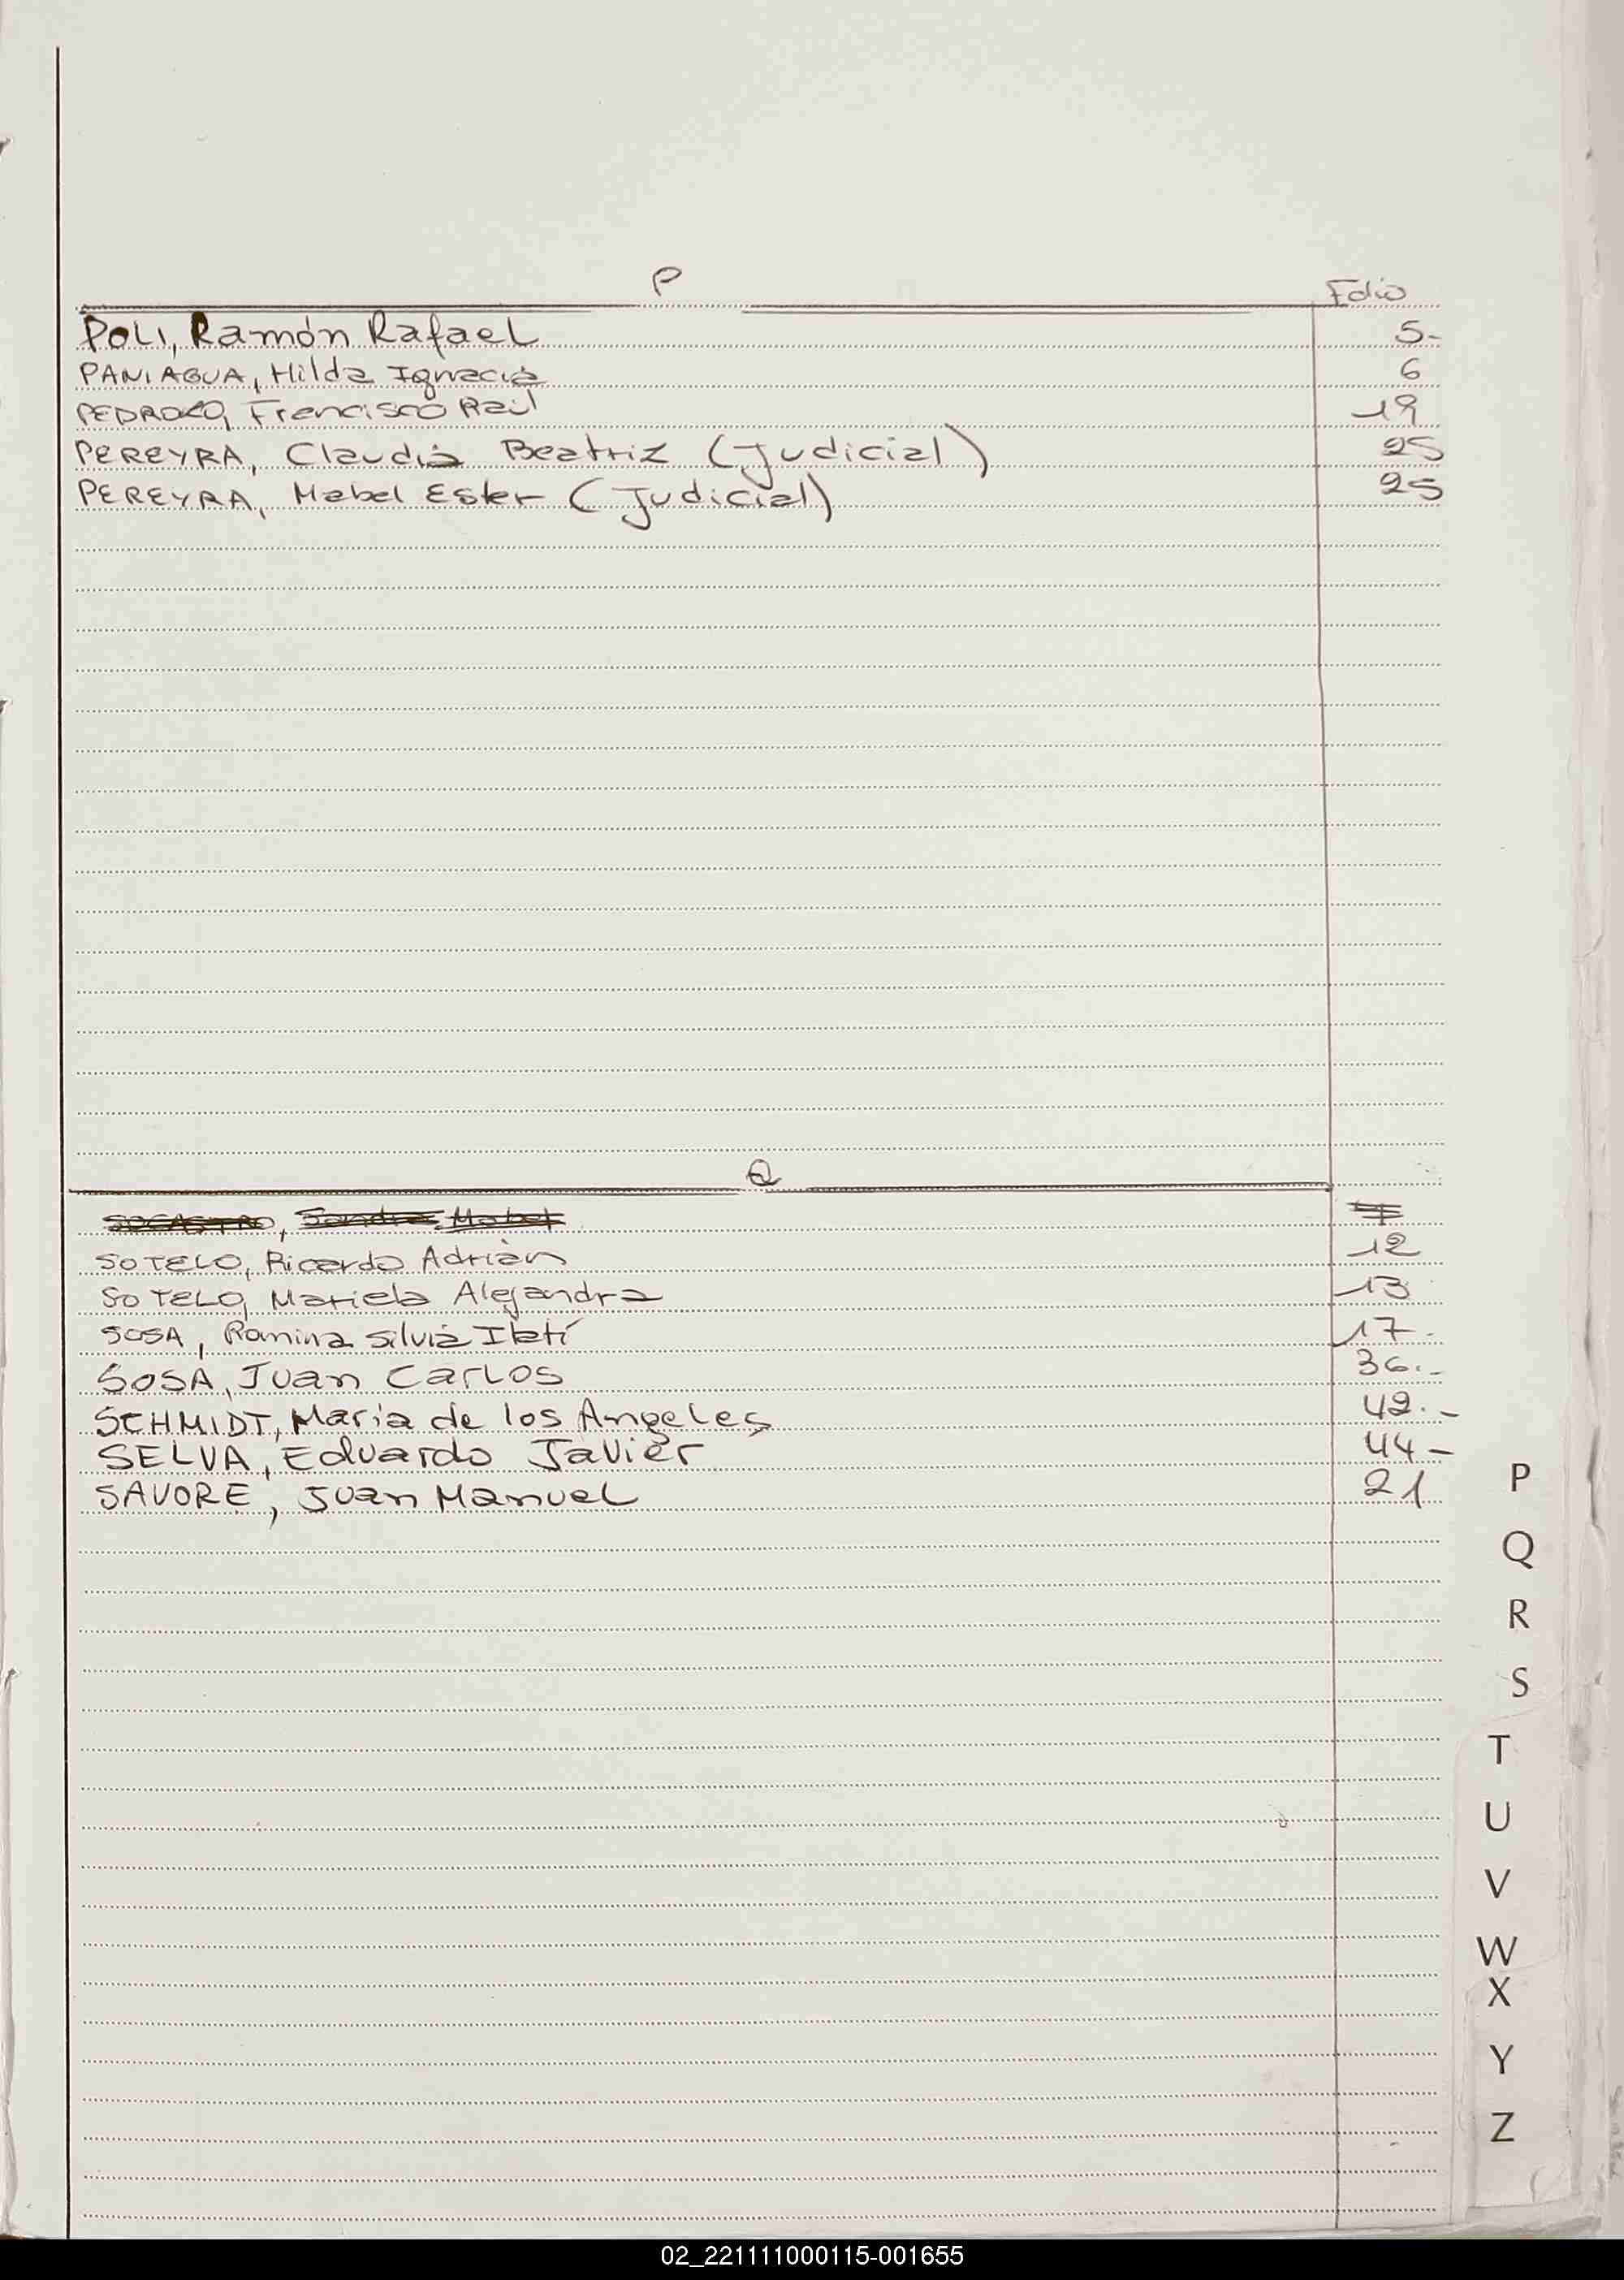 P Folio
POLI, Ramón Rafael 5-
PANIAGUA, Hilda Ignacia 6
PEDROZO, Francisco Raúl 19
PEREYRA, Claudia Beatriz (Judicial) 25
PEREYRA, Mabel Ester (Judicial) 25
Q
SOCASTRO, Sandra Mabel
SOTELO, Ricardo Adrián 12
SOTELO, Mariela Alejandra 13
SOSA, Romina Silvia Itatí 17-
SOSA, Juan Carlos 36.-
SCHMIDT, María de los Angeles 42.-
SELVA, Eduardo Javier 44-
SAVORE, Juan Manuel 21
P
Q
R
S
T
U
V
W
X
Y
Z
02_221111000115-001655